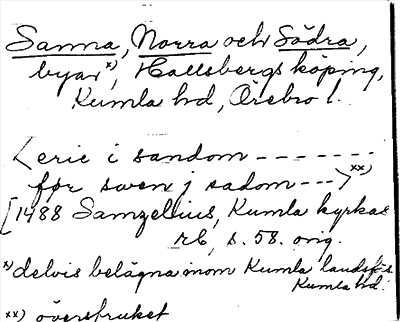 Sanna, Norra och Södra,
byar x), Hallsbergs köping,
Kumla hd, Örebro l.
<eric i sandom - - - - - - -
før swen j sadom - - -> xx)
[1488 Samzelius, Kumla kyrkas
rb, s. 58. orig.
x) delvis belägna inom Kumla landsfs
Kumla hd.
xx) överstruket